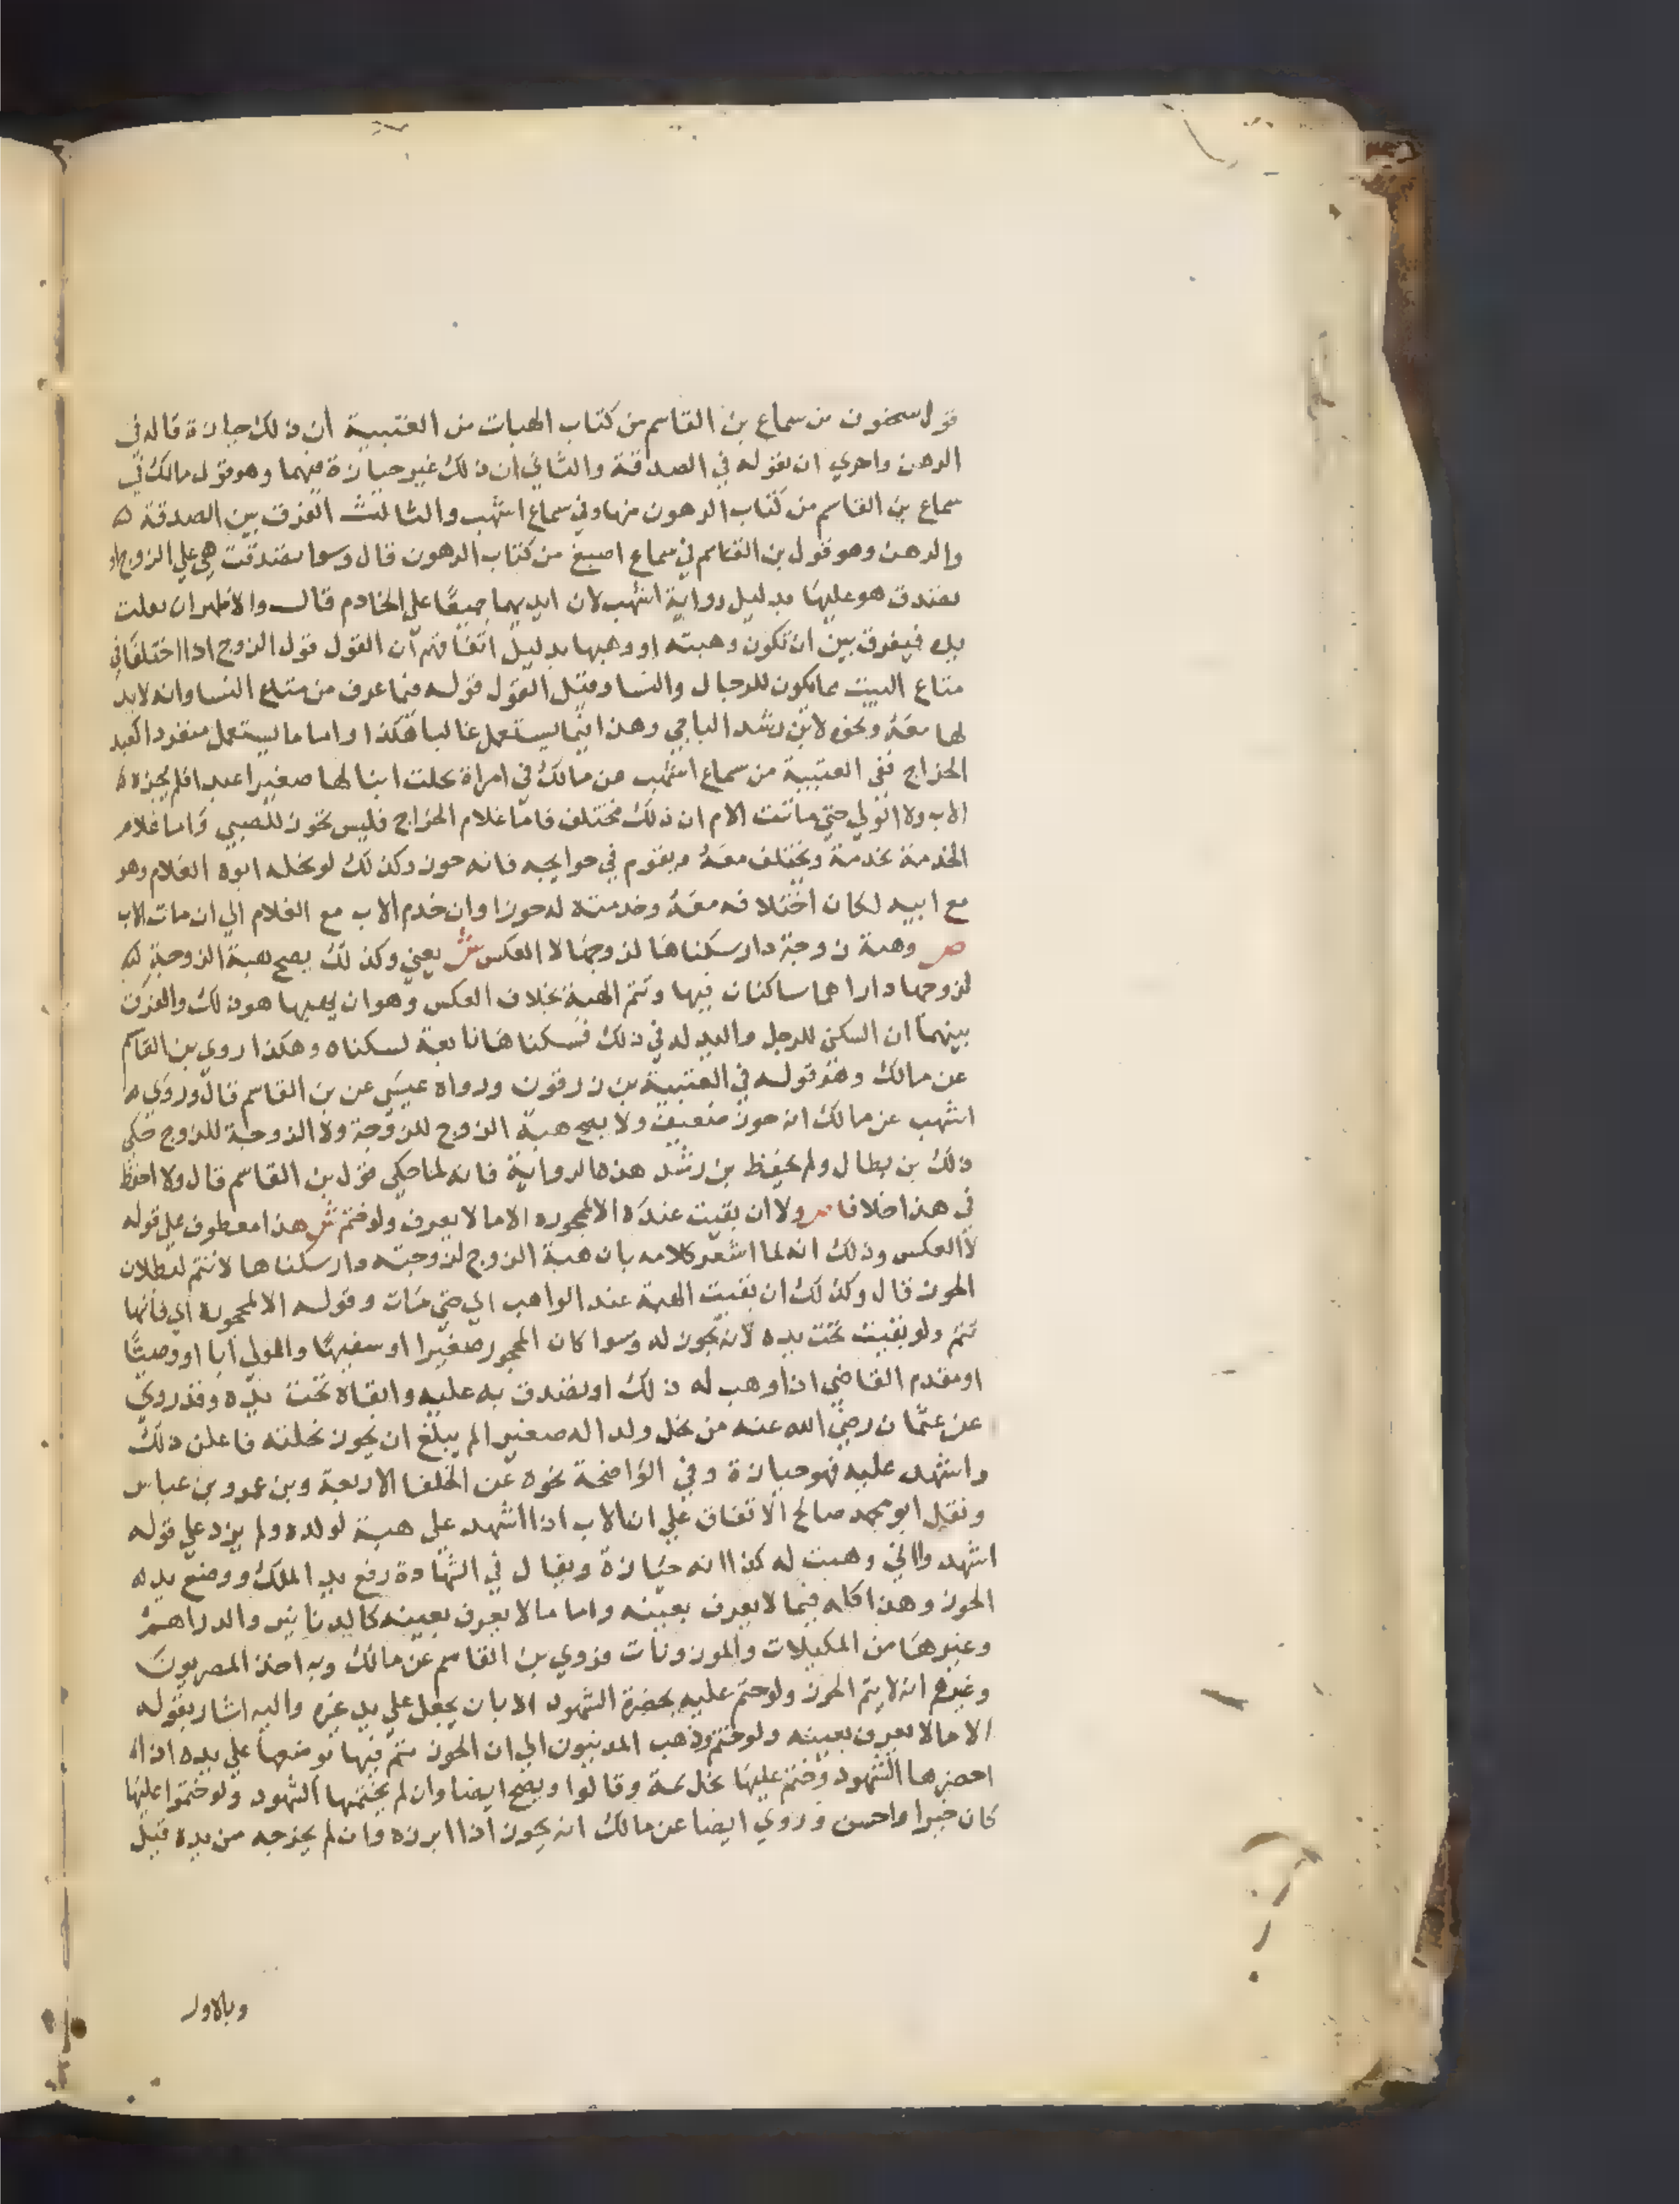 قول سحنون من سماع بن القاسم من كتاب الهبات من العتبية ان ذلك حيازة قاله في
الرهن واحري ان يقوله في الصدقة والثاني ان ذلك غير حيازة فيهما وهو قول مالك في
سماع بن القاسم من كتاب الرهون منها وفي سماع اشهب والثالث الفرق بين الصدقة
والرهن وهو قول بن القاسم في سماع اصبغ من كتاب الرهون قال وسوا تصدقت هي علي الزوج او
تصدق هو عليها بدليل رواية اشهب لان ايديهما جميعا علي الخادم قال والاظهر ان يغلب
يده فيفرق بين ان تكون وهبته او وهبها بدليل اتفاقهم ان القول قول الزوج اذا اختلفا في
متاع البيت مما يكون للرجال والنسا وقبل القول قوله فيما عرف من متاع النسا وانه لا بد
لها معه ونحوه لابن رشد الباجي وهذا فيما يستعمل غالبا هكذا واما ما يستعمل منفردا كعبد
الخراج ففي العتبية من سماع اشهب عن مالك في امراة نحلت ابنا لها صغيرا عبدا فلم يحزه
الاب ولا الولي حتي ماتت الام ان ذلك مختلف فاما غلام الخراج فليس بحوز للصبي واما غلام
الخدمة يخدمه ويختلف معه ويقوم في حوايجه فانه حوز وكذلك لو نحله ابوه الغلام وهو
مع ابيه لكان اختلافه معه وخدمته له حوزا وان خدم الاب مع الغلام الي ان مات الاب
ص وهبة زوجة دار سكناها لزوجها لا العكس ش يعني وكذلك يصح هبة الزوجة
لزوجها دارا هما ساكنان فيها وتتم الهبة بخلاف العكس وهو ان يهبها هو ذلك والفرق
بينهما ان السكن للرجل واليد له في ذلك فسكناها تابعة لسكناه وهكذا روي بن القاسم
عن مالك وهو قوله في العتبية بن زرقون ورواه عيسي عن بن القاسم قال وروي
اشهب عن مالك انه حوز ضعيف ولا يصح هبة الزوج للزوجة ولا الزوجة للزوج حكي
ذلك بن بطال ولم يحفظ بن رشد هذه الرواية فانه لما حكي قول بن القاسم قال ولا احفظ
في هذا خلافا ص ولا ان بقيت عنده الا لمحجوره الا ما لا يعرف ولو ختم ش هذا معطوف علي قوله
لا العكس وذلك انه لما اشعر كلامه بان هبة الزوج لزوجته دار سكناها لا تتم لبطلان
الحوز قال وكذلك ان بقيت الهبة عند الواهب اي حتي مات وقوله الا لمحجوره اي فانها
تتم ولو بقيت تحت يده لانه يحوز له وسوا كان المحجور صغيرا او سفيها والمولي ابا او وصيا
او مقدم القاضي اذا وهب له ذلك او تصدق به عليه وابقاه تحت يده وقد روي
عن عثمان رضي الله عنه من نحل ولدا له صغيرا لم يبلغ ان يحوز نحلته فاعلن ذلك
واشهد عليه فهو حيازة وفي الواضحة نحوه عن الخلفا الاربعة وبن عمر وبن عباس
ونقل ابو محمد صالح الاتفاق علي ان الاب اذا اشهد علي هبة لولده ولم يزد علي قوله
اشهدوا اني وهبت له كذا انه حيازة ويقال في الشهادة رفع يد الملك ووضع يد
الحوز وهذا كله فيما لا يعرف بعينه واما ما لا يعرف بعينه كالدنانير والدراهم
وغيرها من المكيلات والموزونات فروي بن القاسم عن مالك وبه اخذ المصريون
وغيرهم انه لا يتم الحوز ولو ختم عليه بحضرة الشهود الا بان يجعل علي يد غيره واليه اشار بقوله
الا ما لا يعرف بعينه ولو ختم وذهب المدنيون الي ان الحوز يتم فيها بوضعها علي يده اذا
احضرها الشهود وختم عليها بخاتمه وقالوا ويصح ايضا وان لم يختمها الشهود ولو ختموا عليها
كان خيرا واحسن وروي ايضا عن مالك انه يجوز اذا ابرزه وان لم يخرجه من يده قيل
وبالاول